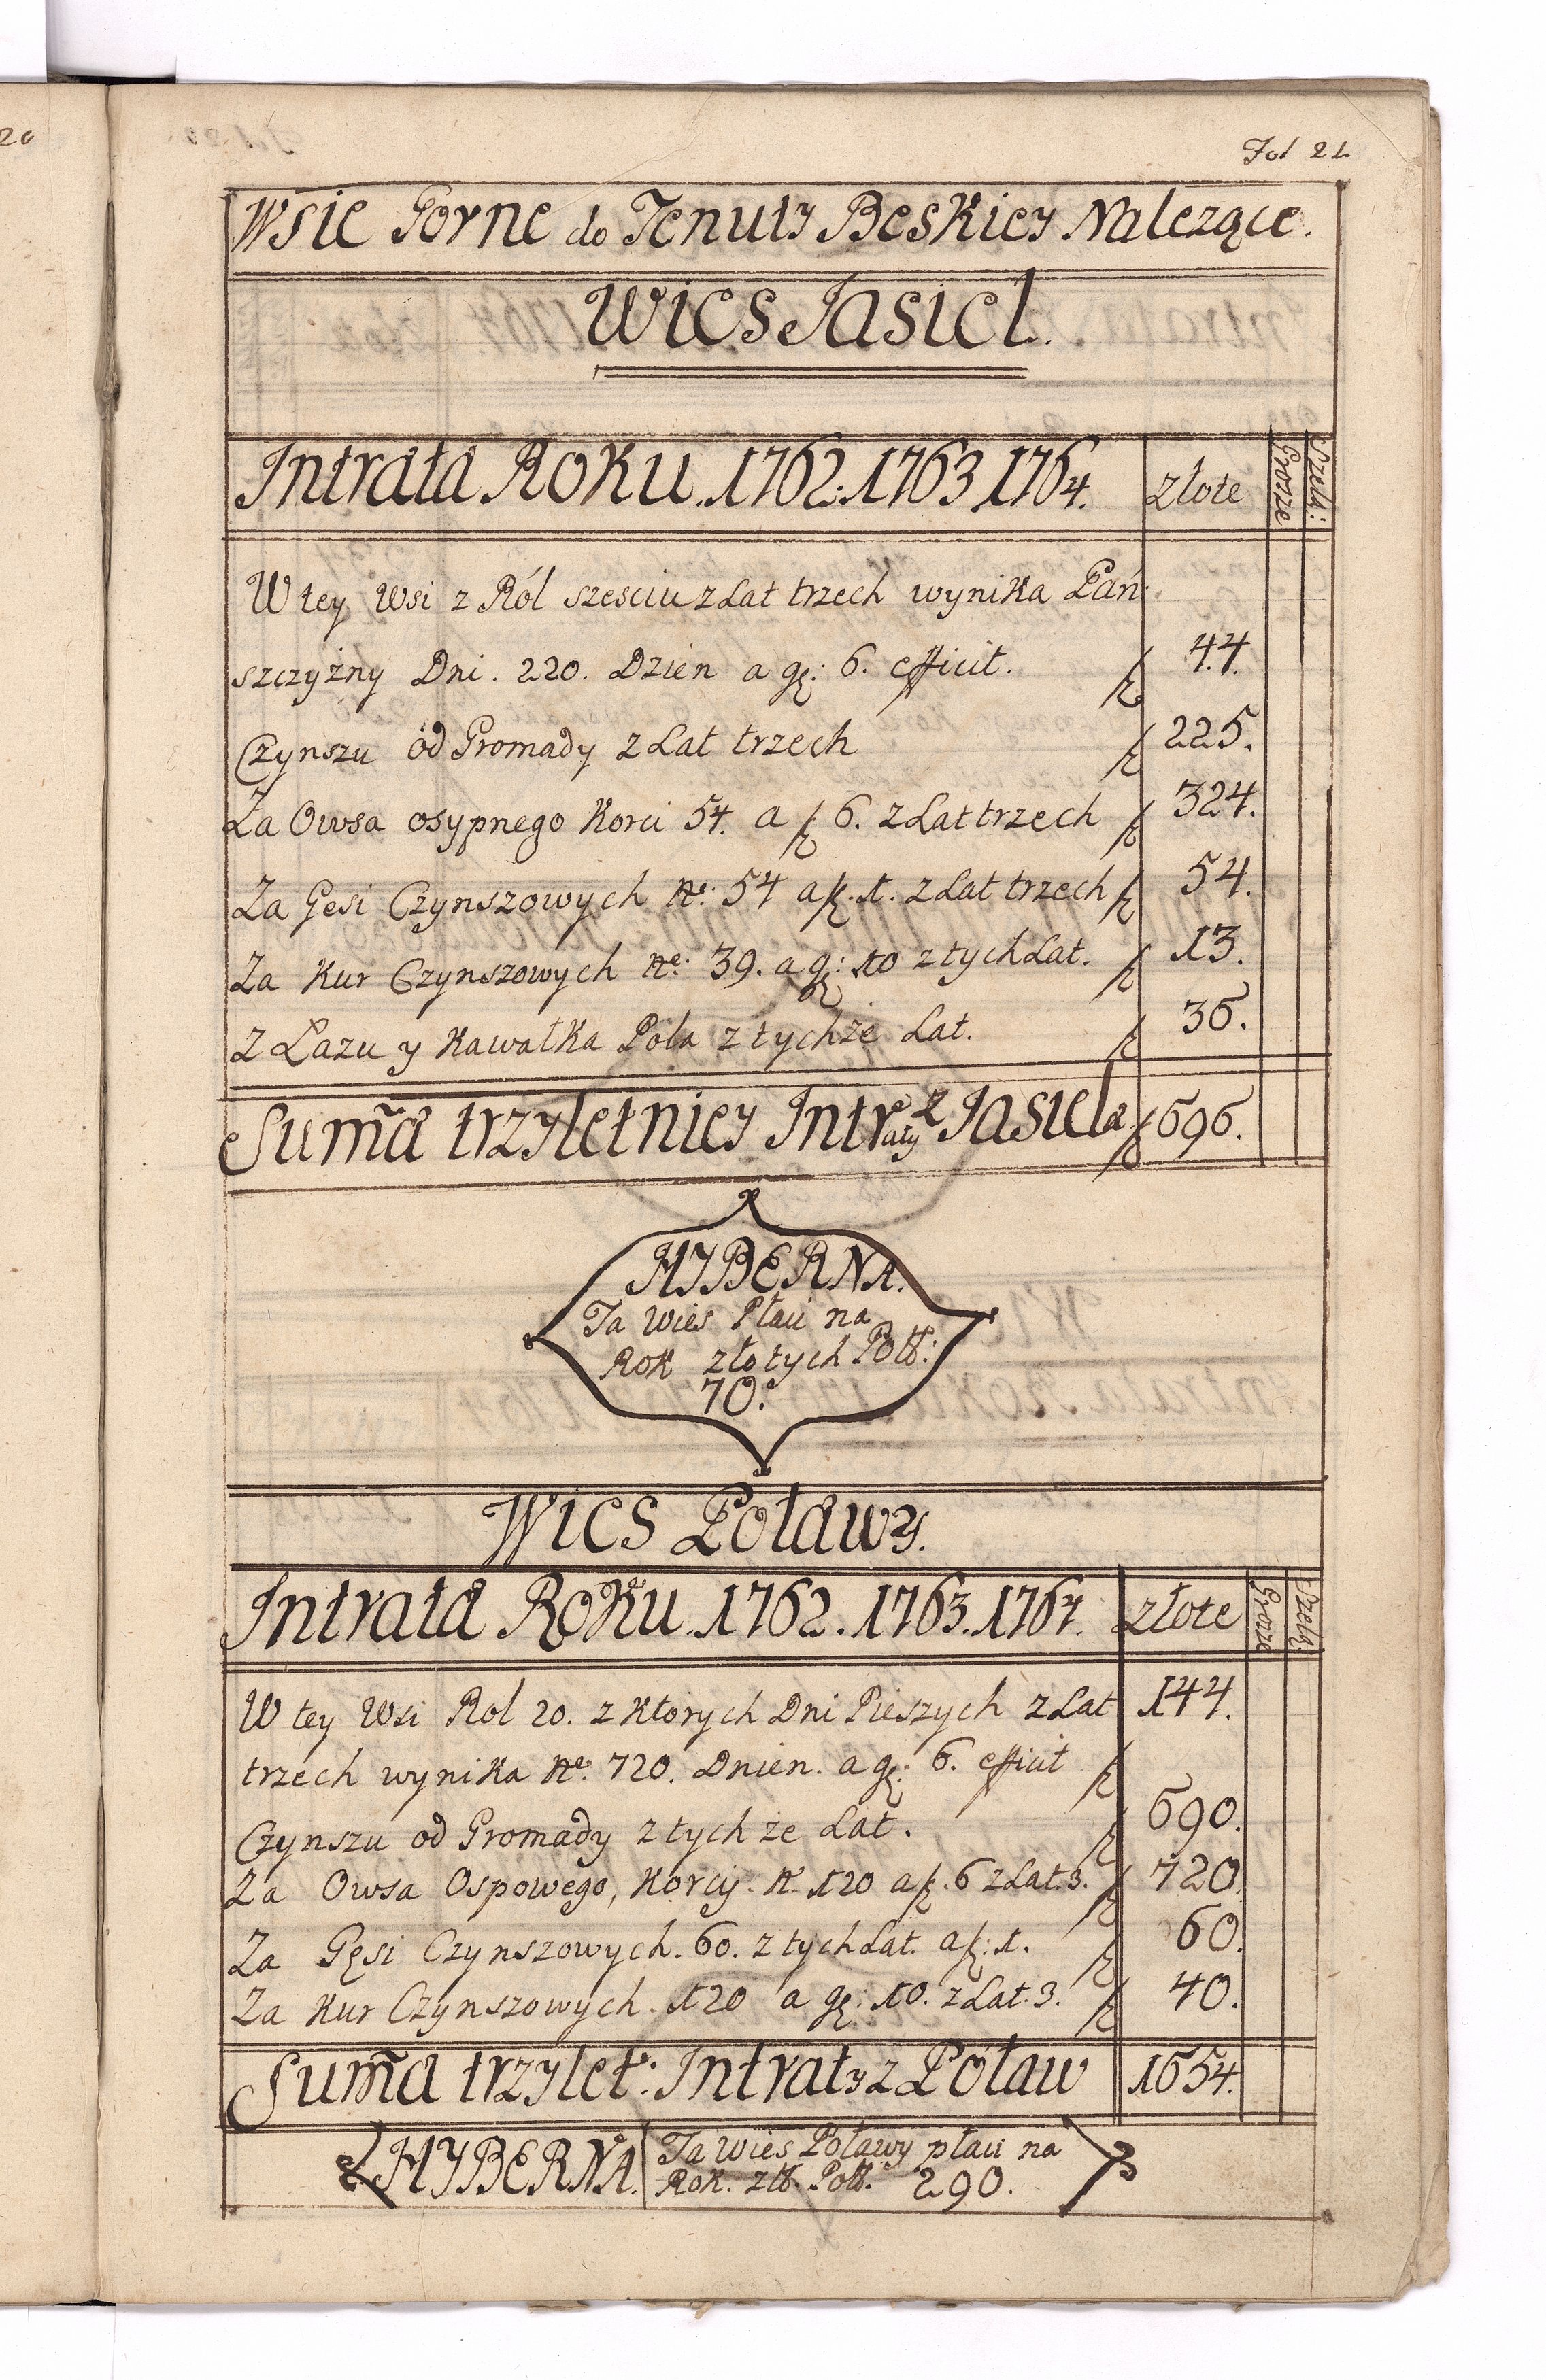 20
Fol 21
Wsie Gorne do Tenuty Beskiey Nalezące.
Wies Jasiel.
Intrata Roku. 1762. 1763 1764. złote Grosze Szelą:
W tey Wsi z Ról szesciu z Lat trzech wynika Pań:
szczyżny Dni. 220. Dzien a gr: 6. efficit. f 44.
Czynszu od Gromady z Lat trzech f 225.
Za Owsa osypnego Korci 54. a f 6. z Lat trzech f 324.
Za Gęsi Czynszowych No: 54 a f. 1. z Lat trzech f 54.
Za Kur Czynszowych No: 39. a gr: 10 z tych Lat. f 13.
Z Łazu y Kawałka Pola z tychże Lat. f 36.
Sum̃a trzyletniey Intraty z Jasiela f 696.
HYBERNA.
Ta Wies Płaci na
Rok złotych Poll:
70.
Wies Poławy.
Intrata Roku. 1762. 1763. 1764. złote Grosze Szelą:
W tey Wsi Rol 20. z Ktorych Dni Pieszych z Lat 144.
trzech wynika No: 720. Dnien. a gr: 6. efficit f
Czynszu od Gromady z tych ze Lat. f 690.
Za Owsa Ospowego, Korcy. N. 120 a f. 6 z Lat. 3. f 720.
Za Gęsi Czynszowych. 60. z tych Lat. a f: 1. f 60.
Za Kur Czynszowych. 120 a gr: 10. z Lat. 3. f 40.
Sum̃a trzylet: Intraty z Poław 1654.
HYBERNA. Ta Wies Poławy płaci na
Rok. zll. Poll. 290.